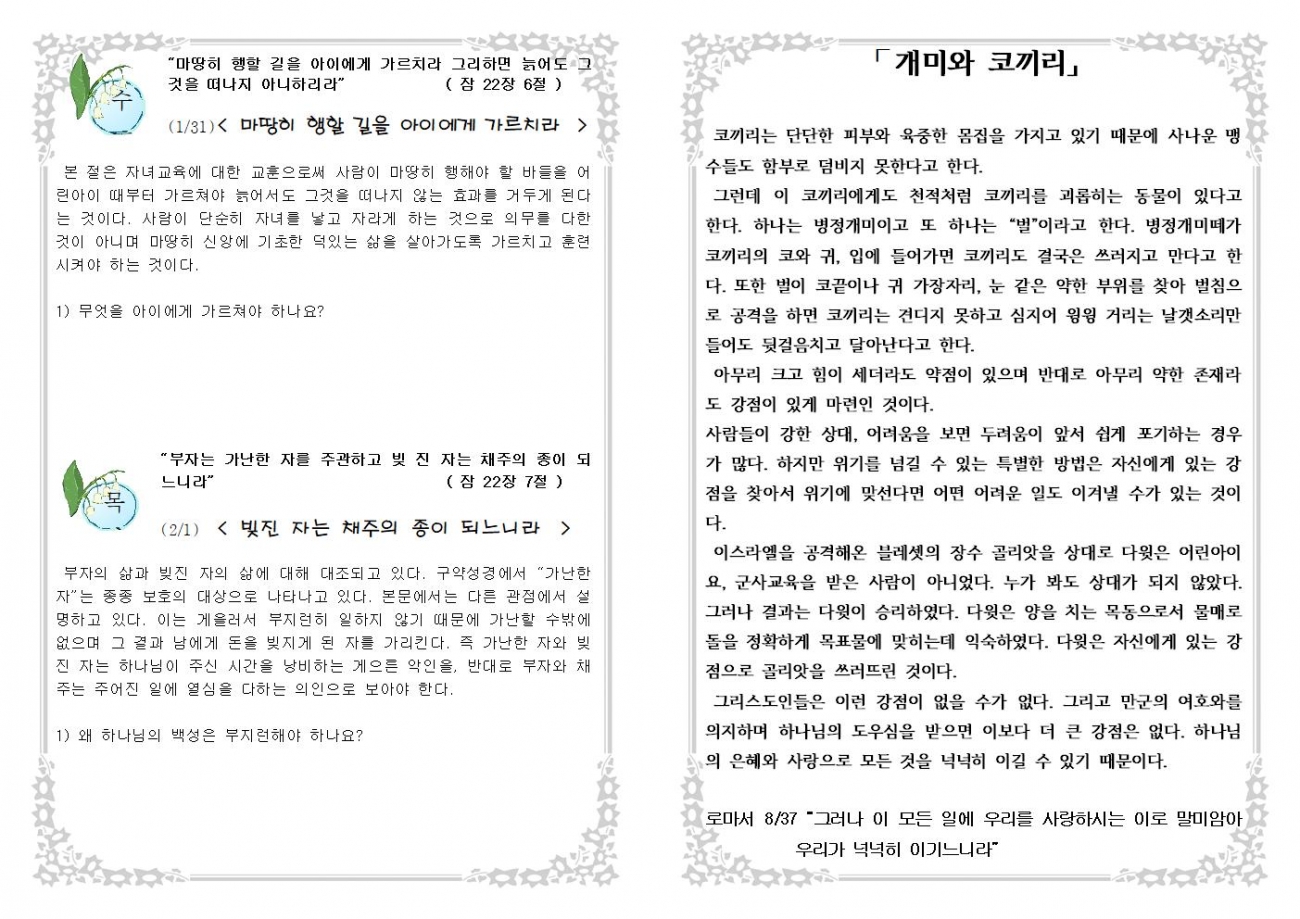 “마땅히 행할 길을 아이에게 가르치라 그리하면 늙어도 그
것을 떠나지 아니하리라” ( 잠 22장 6절 )
수
(1/31)< 마땅히 행할 길을 아이에게 가르치라 >
본 절은 자녀교육에 대한 교훈으로써 사람이 마땅히 행해야 할 바들을 어
린아이 때부터 가르쳐야 늙어서도 그것을 떠나지 않는 효과를 거두게 된다
는 것이다. 사람이 단순히 자녀를 낳고 자라게 하는 것으로 의무를 다한
것이 아니며 마땅히 신앙에 기초한 덕있는 삶을 살아가도록 가르치고 훈련
시켜야 하는 것이다.
1) 무엇을 아이에게 가르쳐야 하나요?
“부자는 가난한 자를 주관하고 빚 진 자는 채주의 종이 되
느니라” ( 잠 22장 7절 )
목
(2/1) < 빚진 자는 채주의 종이 되느니라 >
부자의 삶과 빚진 자의 삶에 대해 대조되고 있다. 구약성경에서 “가난한
자”는 종종 보호의 대상으로 나타나고 있다. 본문에서는 다른 관점에서 설
명하고 있다. 이는 게을러서 부지런히 일하지 않기 때문에 가난할 수밖에
없으며 그 결과 남에게 돈을 빚지게 된 자를 가리킨다. 즉 가난한 자와 빚
진 자는 하나님이 주신 시간을 낭비하는 게으른 악인을, 반대로 부자와 채
주는 주어진 일에 열심을 다하는 의인으로 보아야 한다.
1) 왜 하나님의 백성은 부지런해야 하나요?
「개미와 코끼리」
코끼리는 단단한 피부와 육중한 몸집을 가지고 있기 때문에 사나운 맹
수들도 함부로 덤비지 못한다고 한다.
그런데 이 코끼리에게도 천적처럼 코끼리를 괴롭히는 동물이 있다고
한다. 하나는 병정개미이고 또 하나는 “벌”이라고 한다. 병정개미떼가
코끼리의 코와 귀, 입에 들어가면 코끼리도 결국은 쓰러지고 만다고 한
다. 또한 벌이 코끝이나 귀 가장자리, 눈 같은 약한 부위를 찾아 벌침으
로 공격을 하면 코끼리는 견디지 못하고 심지어 윙윙 거리는 날갯소리만
들어도 뒷걸음치고 달아난다고 한다.
아무리 크고 힘이 세더라도 약점이 있으며 반대로 아무리 약한 존재라
도 강점이 있게 마련인 것이다.
사람들이 강한 상대, 어려움을 보면 두려움이 앞서 쉽게 포기하는 경우
가 많다. 하지만 위기를 넘길 수 있는 특별한 방법은 자신에게 있는 강
점을 찾아서 위기에 맞선다면 어떤 어려운 일도 이겨낼 수가 있는 것이
다.
이스라엘을 공격해온 블레셋의 장수 골리앗을 상대로 다윗은 어린아이
요, 군사교육을 받은 사람이 아니었다. 누가 봐도 상대가 되지 않았다.
그러나 결과는 다윗이 승리하였다. 다윗은 양을 치는 목동으로서 물매로
돌을 정확하게 목표물에 맞히는데 익숙하였다. 다윗은 자신에게 있는 강
점으로 골리앗을 쓰러뜨린 것이다.
그리스도인들은 이런 강점이 없을 수가 없다. 그리고 만군의 여호와를
의지하며 하나님의 도우심을 받으면 이보다 더 큰 강점은 없다. 하나님
의 은혜와 사랑으로 모든 것을 넉넉히 이길 수 있기 때문이다.
로마서 8/37 “그러나 이 모든 일에 우리를 사랑하시는 이로 말미암아
우리가 넉넉히 이기느니라”